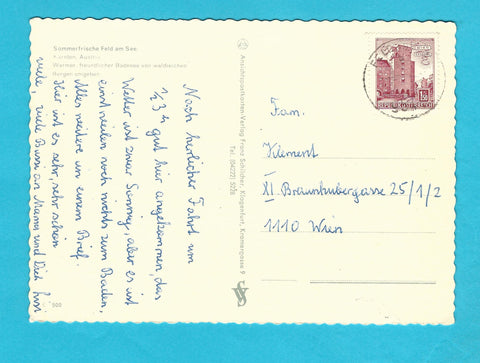 Sommerfrische Feld am See
Kärnten, Austria
Warmer, freundlicher Badesee von waldreichen
Bergen umgeben
Nach herrlicher Fahrt um
½ 3 h gut hier angekommen, das
Wetter ist zwar sonnig, aber es ist
einstweilen noch nichts zum Baden,
Alles weitere in einem Brief.
Hier ist es sehr, sehr schön
viele, viele Bussi an Mama und Dich
500
Ansichtspostkarten-Verlag Franz Schilcher, Klagenfurt, Kramergasse 9
Tel. (04222) 5228
REPUBLIK ÖSTERREICH
Fam.
Klement
XI. Braunhubergasse 25/1/2
1110 Wien